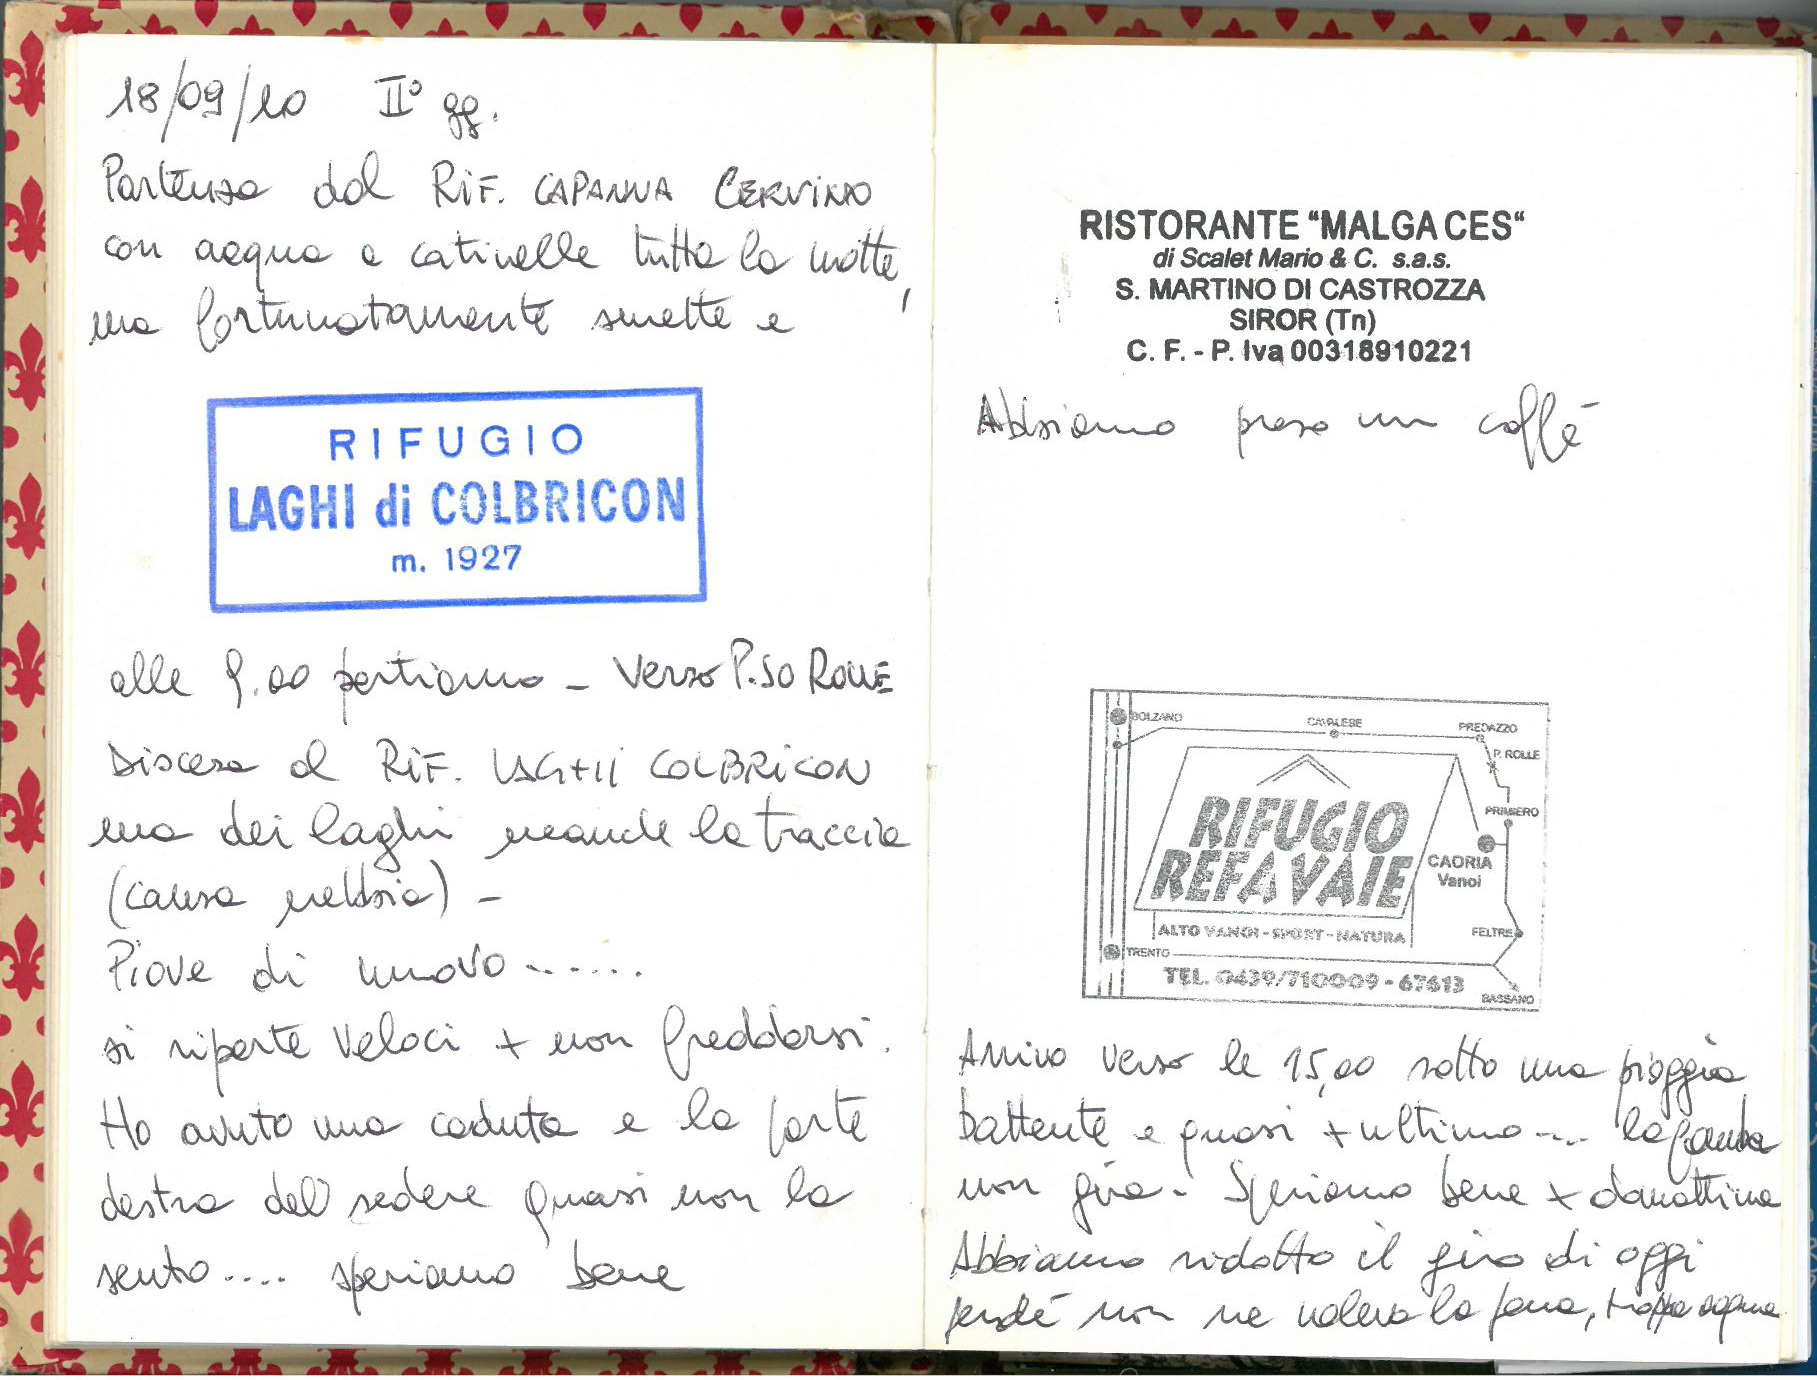 18/09/10 II° gg.
Partenza dal RIF. CAPANNA CERVINO
con acqua a catinelle tutta la notte,
ma fortunatamente smette e
RIFUGIO
LAGHI di COLBRICON
m. 1927
alle 9.00 partiamo - verso P.SO ROLLE
Discesa al RIF. LAGHI COLBRICON
ma dei laghi neanche la traccia
(causa nebbia) -
Piove di nuovo .......
si riparte veloci x non freddarsi.
Ho avuto una caduta e la parte
destra del sedere quasi non la
sento.... speriamo bene
RISTORANTE “MALGA CES“
di Scalet Mario & C. s.a.s.
S. MARTINO DI CASTROZZA
SIROR (Tn)
C. F. - P. Iva 00318910221
Abbiamo preso un caffè
BOLZANO
CAVALESE
PREDAZZO
P. ROLLE
RIFUGIO
REFAVAIE
PRIMIERO
CAORIA
Vanoi
ALTO VANOI - SPORT - NATURA
FELTRE
TRENTO
TEL. 0439/710009 - 67613
BASSANO
Arrivo verso le 15,00 sotto una pioggia
battente e quasi x ultimo.... la gamba
non gira. Speriamo bene x domattina
Abbiamo ridotto il giro di oggi
perché non ne valeva la pena, troppa acqua